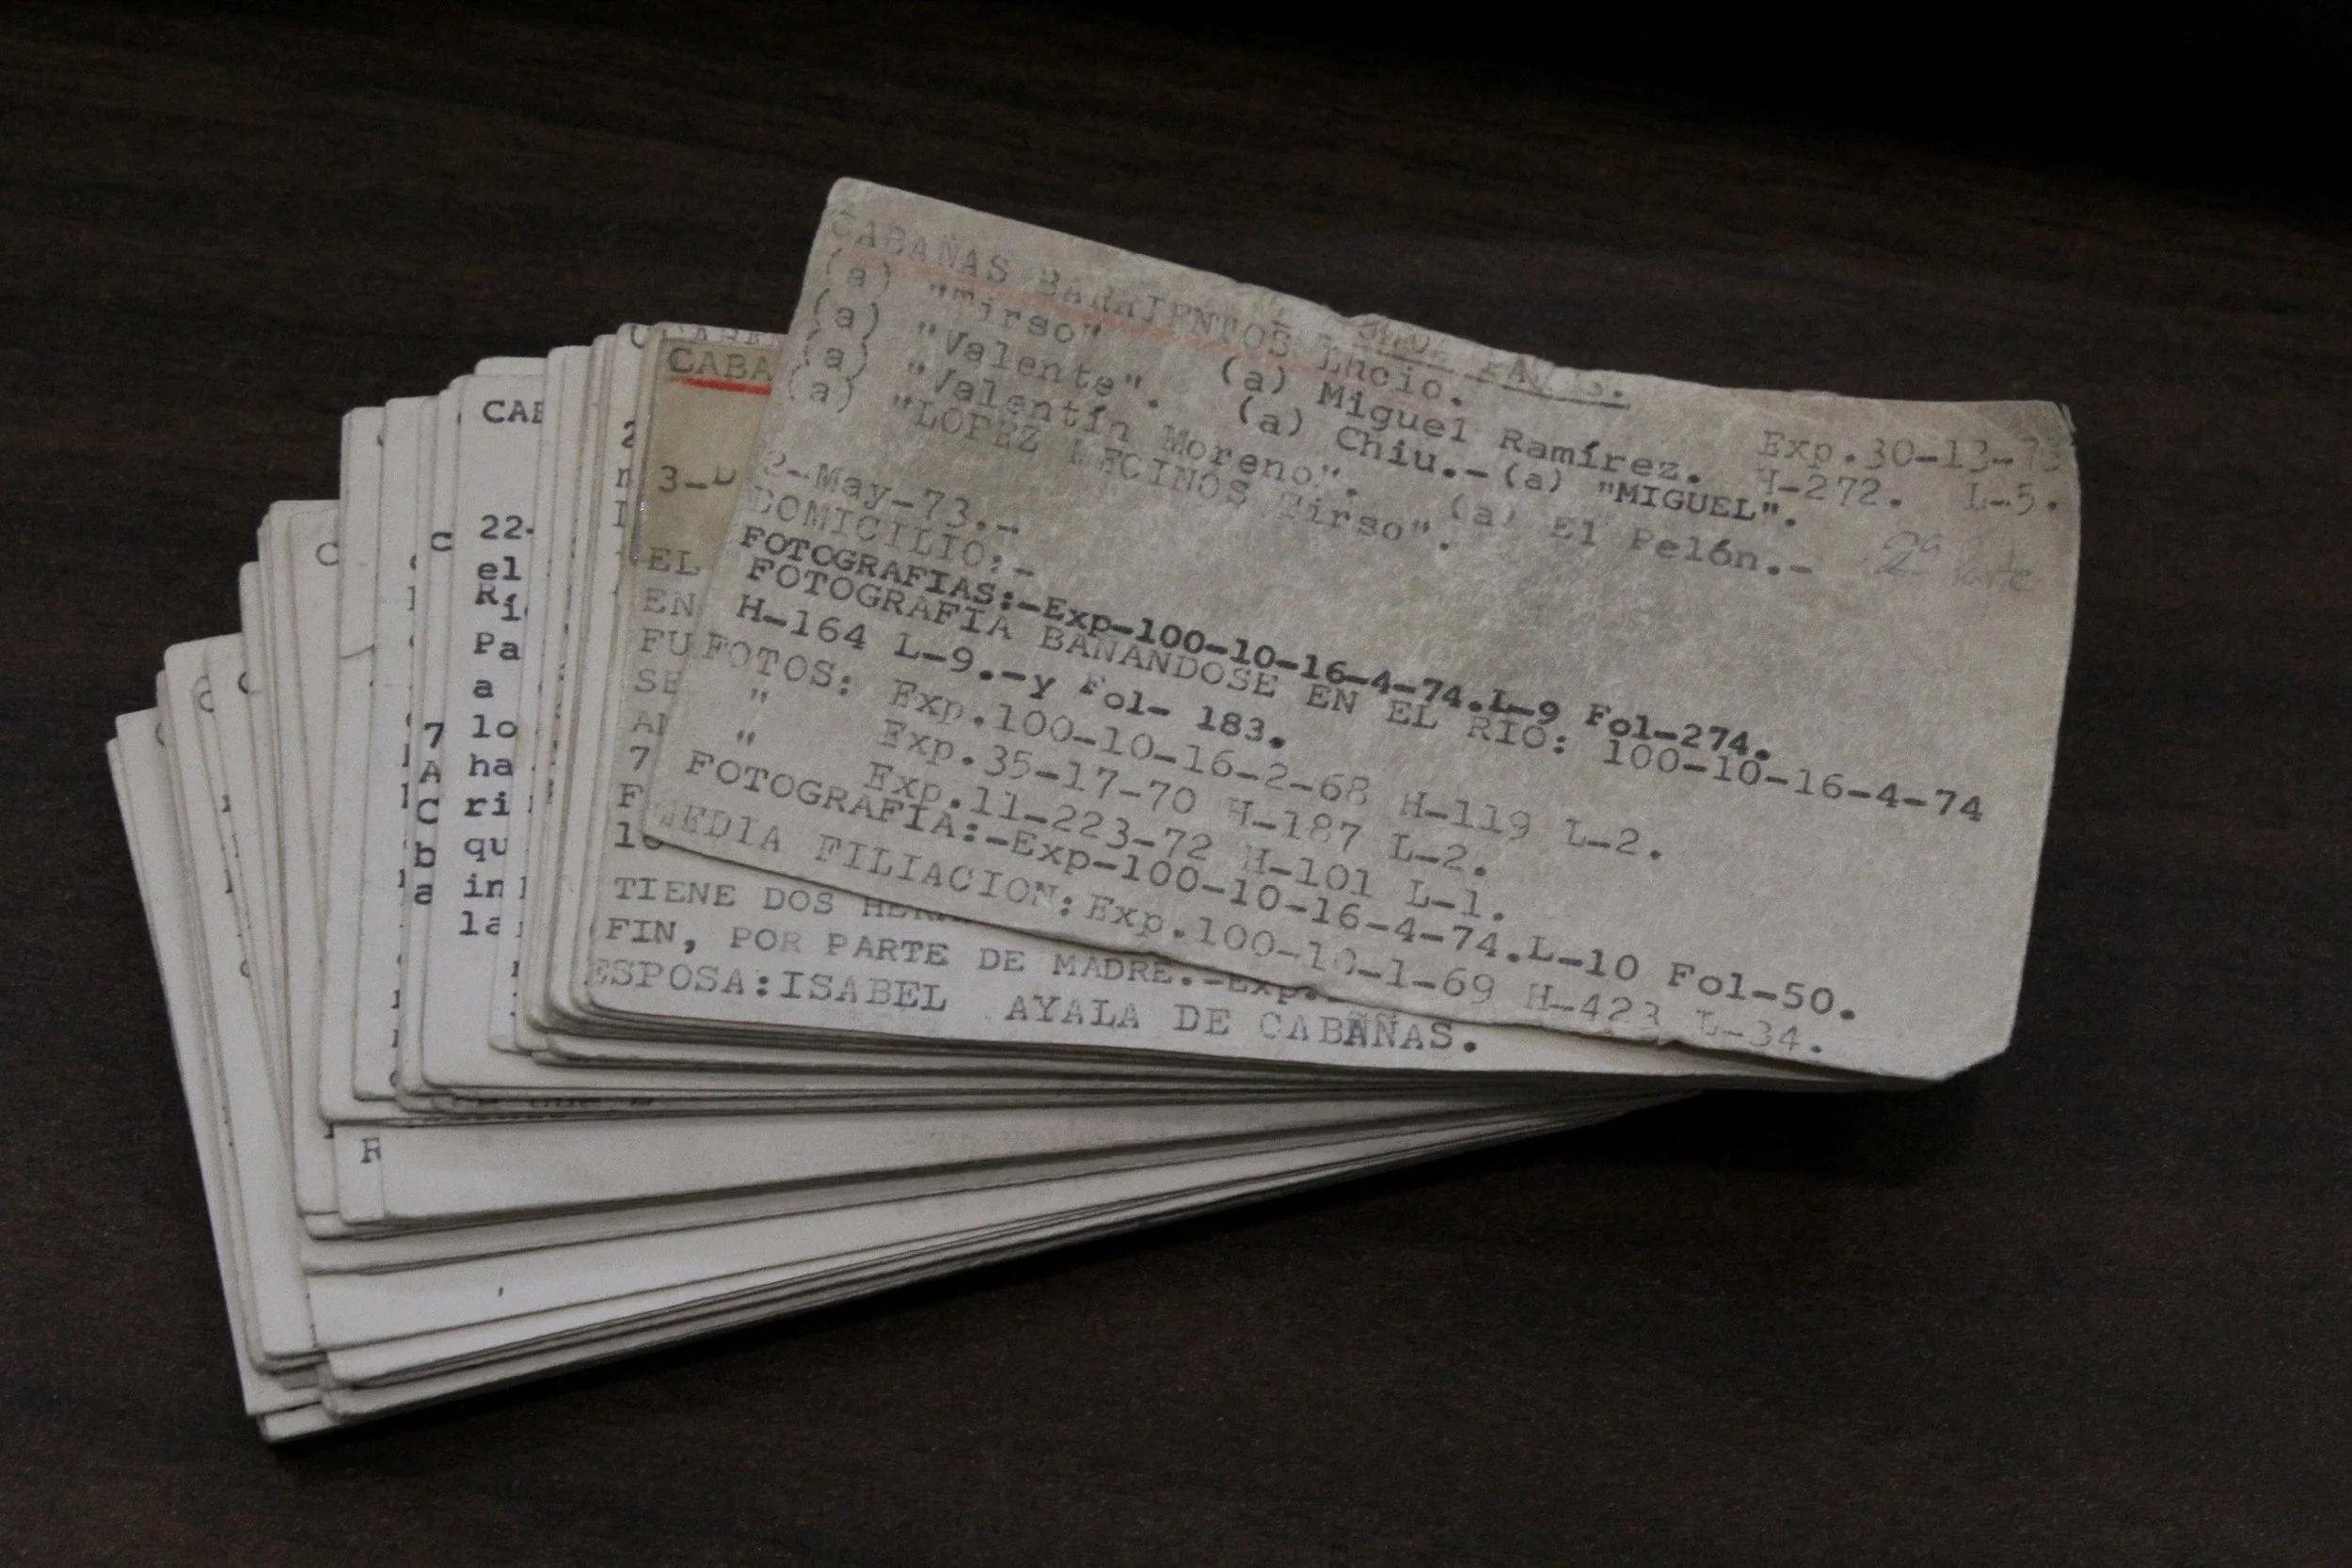 CABAÑAS BARRIENTOS Lucio.
(a) "Tirso" (a) Miguel Ramírez.
(a) "Valente". (a) Chiu.-(a) "MIGUEL".
(a) "Valentín Moreno". (a) El Pelón.-
(a) "LOPEZ LECINOS Tirso".
Exp.30-13-73
H-272. L-5.
2a Parte
2-May-73.-
DOMICILIO:-
FOTOGRAFIAS:-Exp-100-10-16-4-74.L-9 Fol-274.
FOTOGRAFIA BAÑANDOSE EN EL RIO: 100-10-16-4-74
H-164 L-9.-y Fol- 183.
FOTOS: Exp.100-10-16-2-68 H-119 L-2.
" Exp.35-17-70 H-187 L-2.
" Exp.11-223-72 H-101 L-1.
FOTOGRAFIA:-Exp-100-10-16-4-74.L-10 Fol-50.
MEDIA FILIACION:Exp.100-10-1-69 H-423 L-34.
CABA
3-D
EL
EN
FU
SE
7
F
TIENE DOS
FIN, POR PARTE DE MADRE.-Exp.
ESPOSA:ISABEL AYALA DE CABAÑAS.
CAB
22-
el
Pa
a
lo
ha
ri
qu
in
la
C
7
A
C
b
a
R